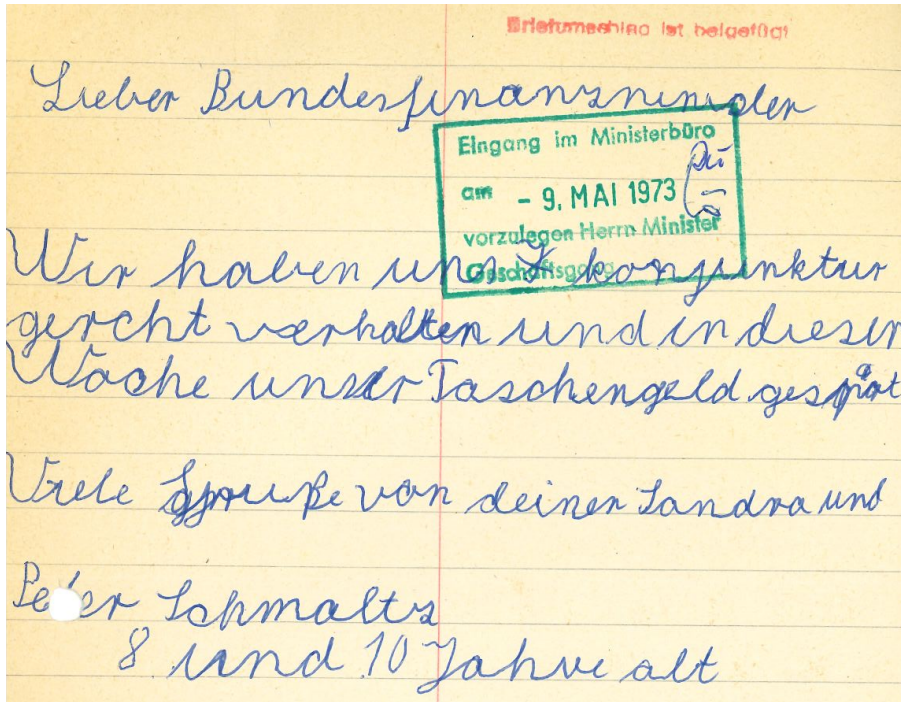 Briefumschlag ist beigefügt
Lieber Bundesfinanzminister
Eingang im Ministerbüro
am - 9. MAI 1973
vorzulegen Herrn Minister
Geschäftsgang
Wir haben uns konjunktur
gercht verhalten und in dieser
Woche unser Taschengeld gespart
Viele Gruße von deiner Sandra und
Peter Schmaltz
8 und 10 Jahre alt